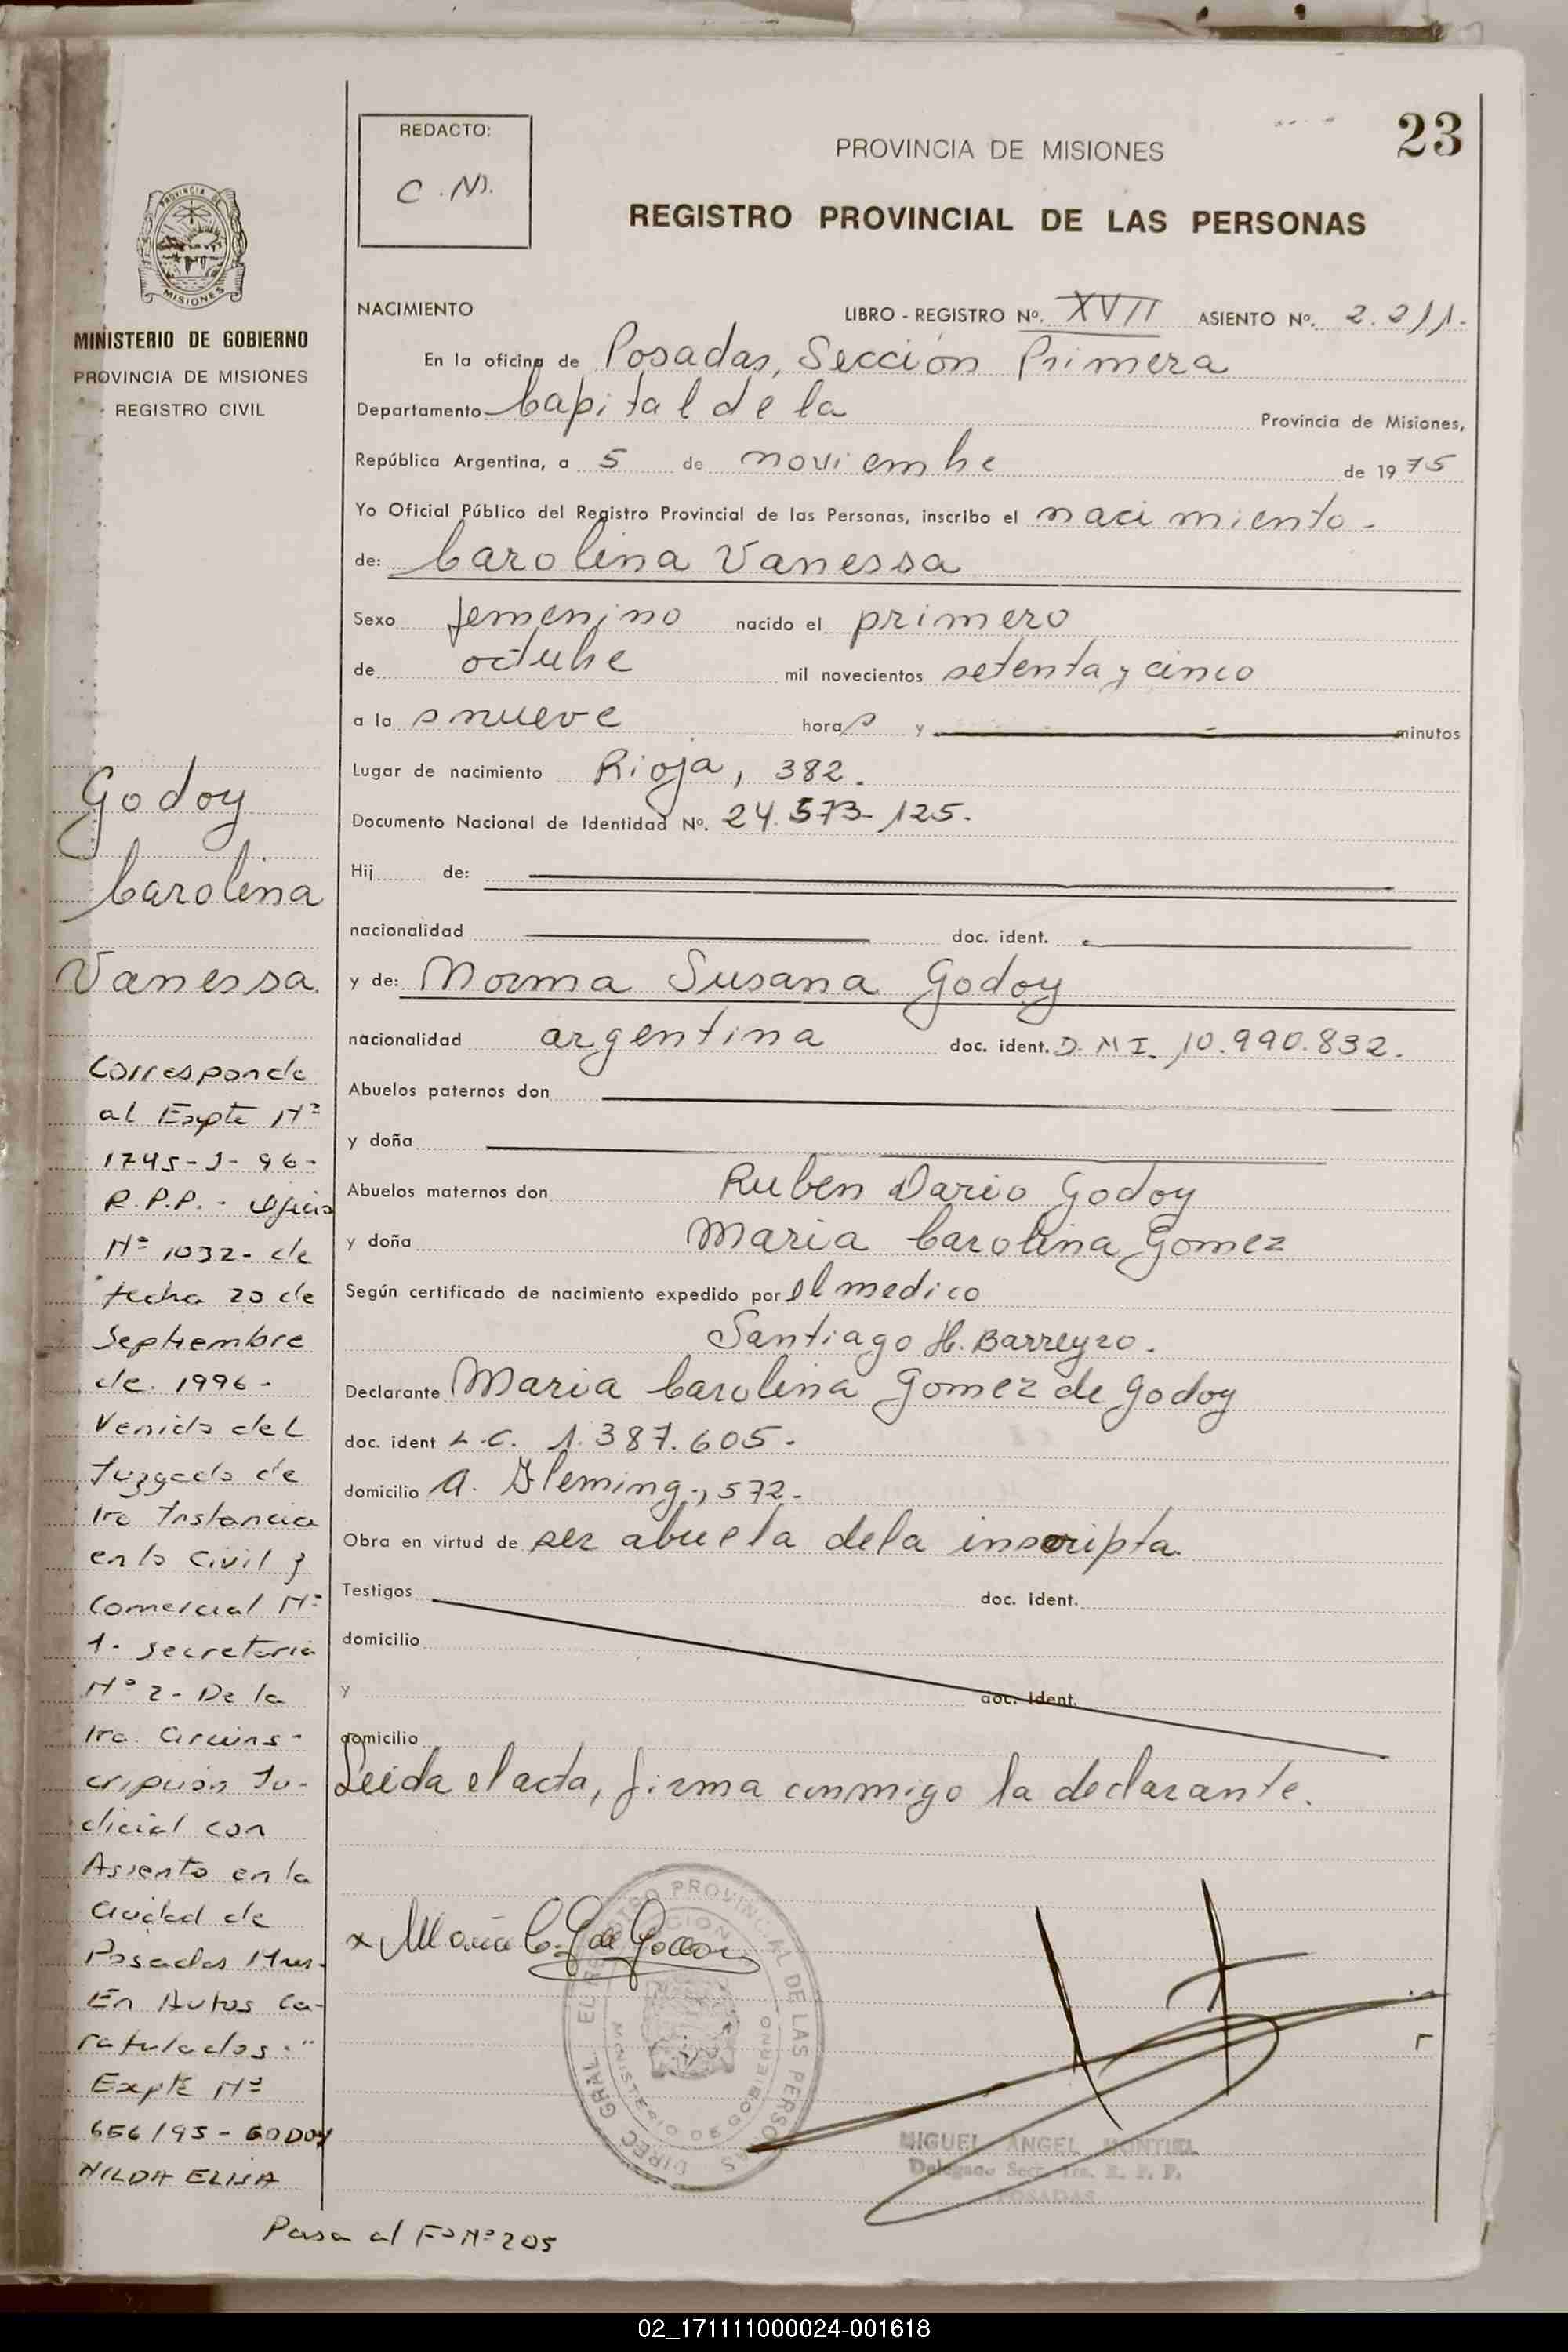 23
REDACTO:
C.M.
PROVINCIA DE MISIONES
REGISTRO PROVINCIAL DE LAS PERSONAS
PROVINCIA DE
MISIONES
MINISTERIO DE GOBIERNO
PROVINCIA DE MISIONES
REGISTRO CIVIL
NACIMIENTO LIBRO - REGISTRO Nº. XVII ASIENTO Nº. 2.211.
En la oficina de Posadas, Sección Primera
Departamento Capital de la Provincia de Misiones,
República Argentina, a 5 de noviembre de 1975
Yo Oficial Público del Registro Provincial de las Personas, inscribo el nacimiento -
de: Carolina Vanessa
Sexo femenino nacido el primero
de octubre mil novecientos setenta y cinco
a la s nueve hora s y minutos
Lugar de nacimiento Rioja, 382.
Documento Nacional de Identidad Nº. 24.573-125.
Hij de:
nacionalidad doc. ident.
y de: Norma Susana Godoy
nacionalidad argentina doc. ident. D.N.I. 10.990.832.
Abuelos paternos don
y doña
Abuelos maternos don Ruben Dario Godoy
y doña Maria Carolina Gomez
Según certificado de nacimiento expedido por el medico
Santiago H. Barreyro.
Declarante Maria Carolina Gomez de Godoy
doc. ident L.C. 1.387.605.
domicilio A. Fleming, 572.
Obra en virtud de ser abuela de la inscripta
Testigos doc. ident.
domicilio
y doc. ident.
domicilio
Leida el acta, firma conmigo la declarante.
Godoy
Carolina
Vanessa.
Corresponde
al Expte Nº
1745-J-96-
R.P.P. - Oficio
Nº 1032- de
fecha 20 de
Septiembre
de 1996-
Venido del
Juzgado de
1ra Instancia
en lo Civil y
Comercial Nº
1- secretaria
Nº 2- De la
1ra Circuns-
cripción Ju-
dicial con
Asiento en la
Ciudad de
Posadas Mnes.
En Autos Ca-
ratulados: "
Expte Nº
656/95 - GODOY
NILDA ELISA
Pasa al Fº Nº 205
x Maria C. G de Godoy
DIREC. GRAL. EL REGISTRO PROVINCIAL DE LAS PERSONAS
MINISTERIO DE GOBIERNO
MIGUEL ANGEL MONTIEL
Delegado Secc. 1ra. R. P. P.
POSADAS
02_171111000024-001618